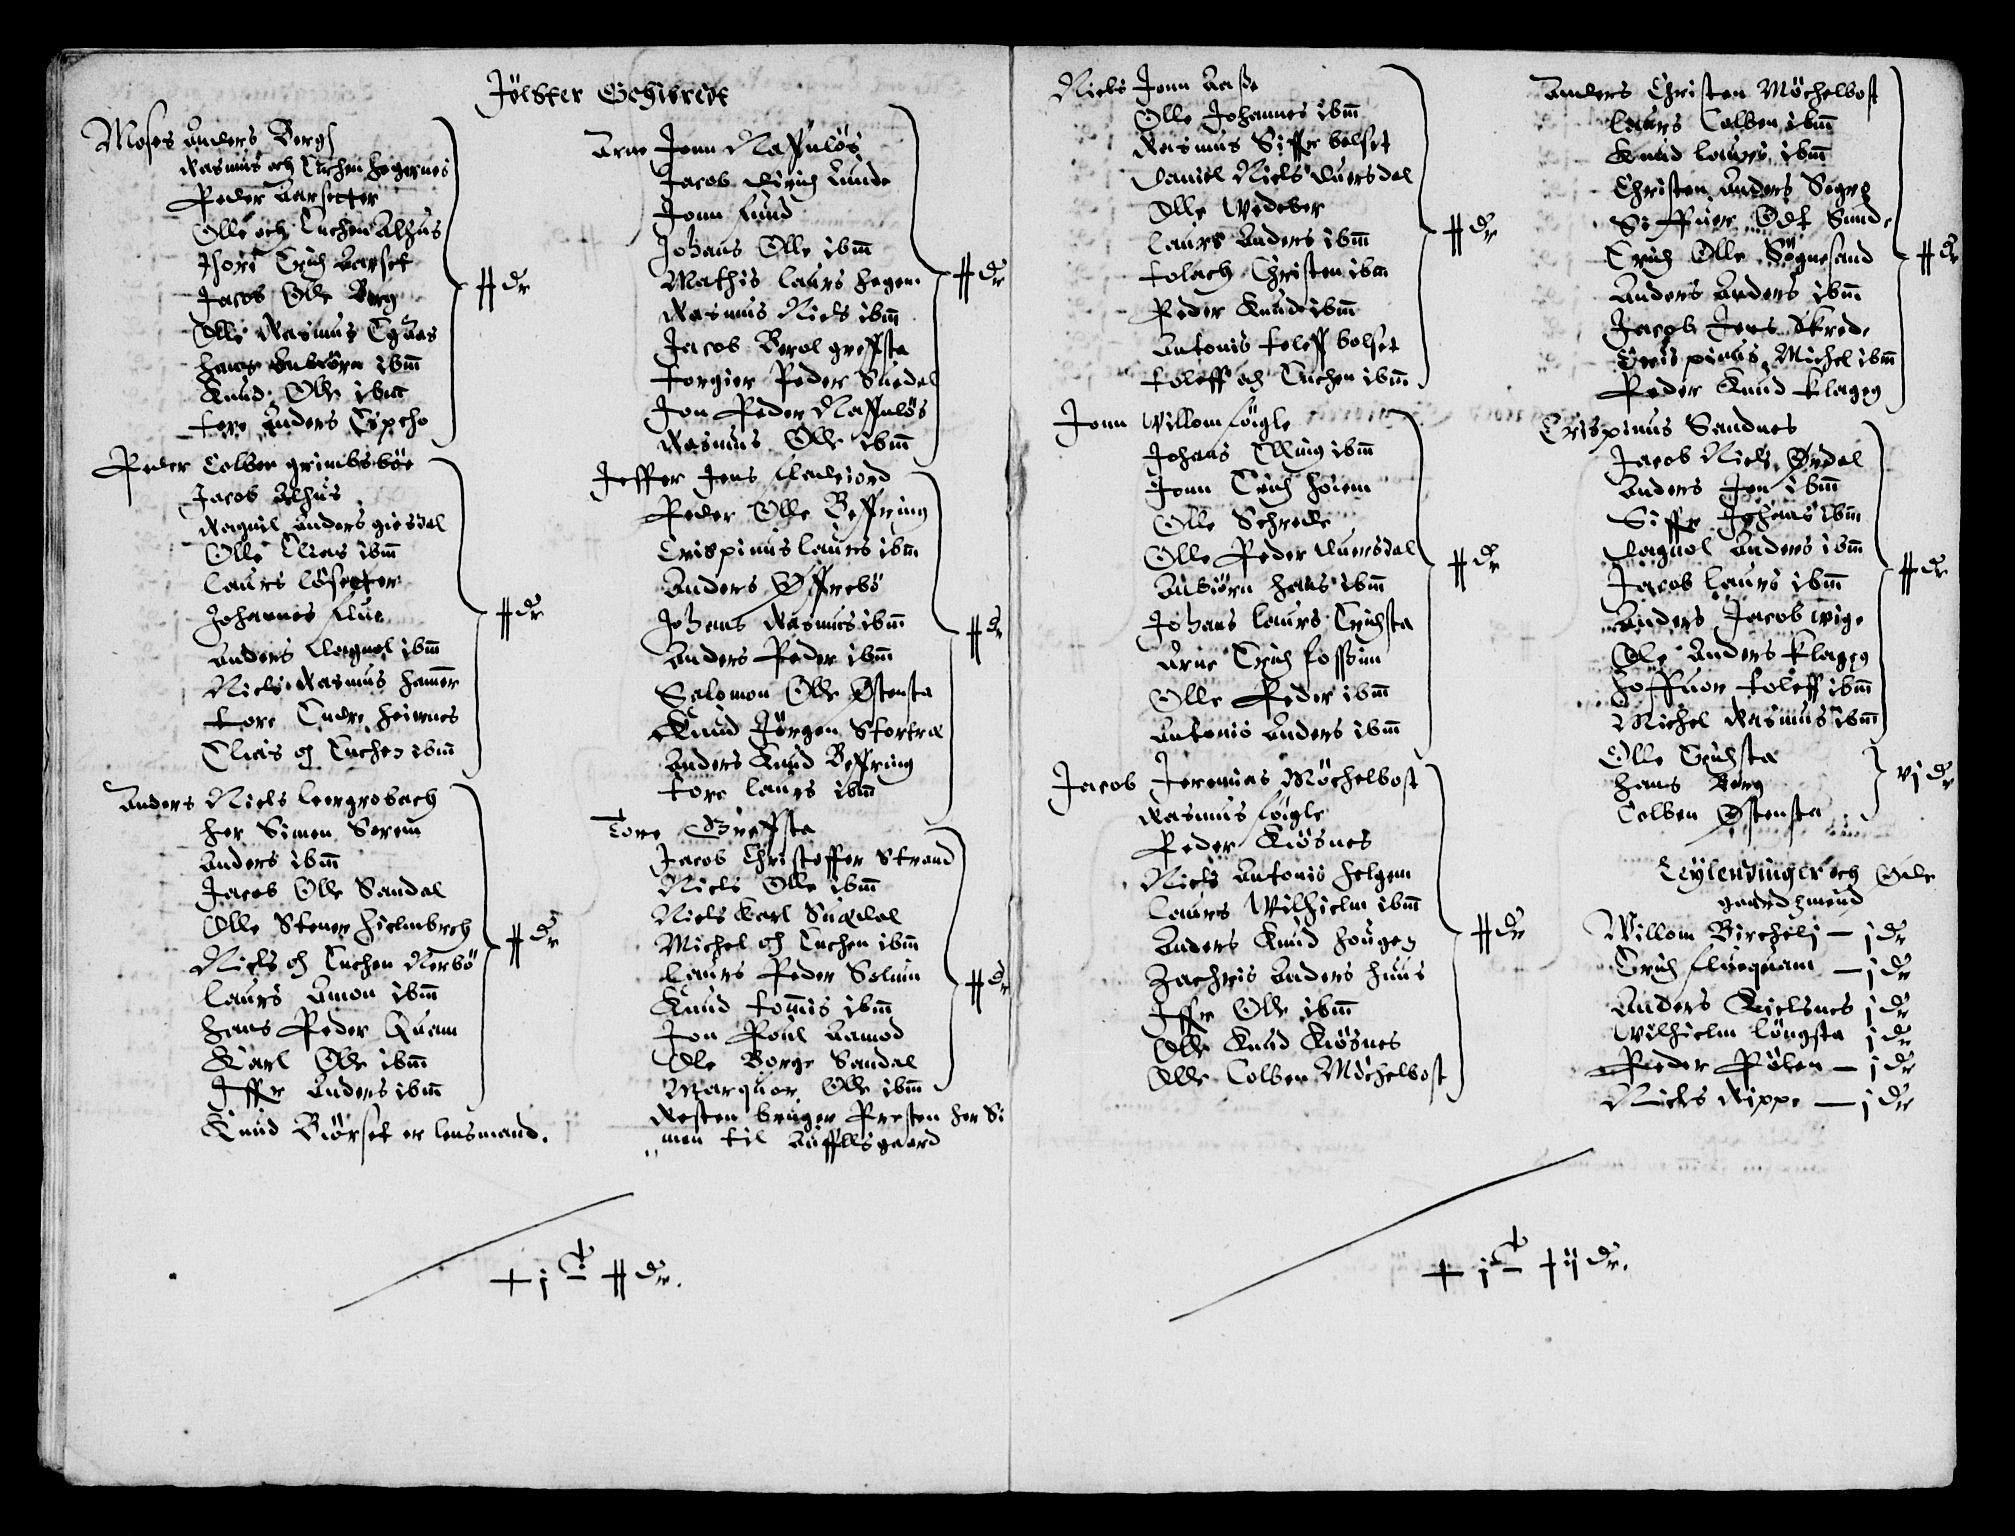 Jölster Schibrede
Moses Anders Berg
Rasmus och Enchen Hegernes
Peder Aarsetter
Olle och Enchen Alhus
Thori Erich Aarset
Jacob Olle Berg
Olle Rasmus
Hans Anbiörn ibm
Knud Olle ibm
Tore Anders
Peder Colben grimbsböe
Jacob Alhus
Ragnil Anders giesdal
Olle Elias ibm
Laurs lösetter
Johannes Flue
Anders Aagnol ibm
Niels Rasmus Hamer
Tore Endre Heirnes
Elias och Enchen ibm
Anders Niels leergrobach
Her Simen Sereim
Anders ibm
Jacob Olle Sandal
Olle Stener Hielmbrech
Niels och Enchen Nerbö
Laurs Amon ibm
Hans Peder Quam
Karl Olle ibm
Iffer Anders ibm
Knud Biörset er lensmand.
# dr
# dr
# dr
Arne Jonn Naffnlös
Jacob Dirich Lunde
Jonn Lund
Johans Olle ibm
Mathis Laurs Hegem
Rasmus Niels ibm
Jacob Berol greffsta
Torgier Peder Suedal
Jon Peder Naffnlös
Rasmus Olle ibm
Jeffer Jens Aadeiord
Peder Olle Beffring
Crispinus Laurs ibm
Anders Öffrebö
Johans Rasmus ibm
Anders Peder ibm
Salomon Olle Østensta
Knud Jörgen Stortræ
Anders Knud Beffring
Tore Laurs ibm
Tore Greffsta
Jacob Christoffer Strand
Niels Olle ibm
Niels Karl Suædal
Michel och Enchen ibm
Laurs Peder Solum
Knud Tomis ibm
Jon Poul Aamod
Ole Borge Sandal
Marquor Olle ibm
Resten bruger Presten her Si
men til Auffllsgaard
# dr
# dr
# dr
+ j c # dr.
Niels Jonn Aasse
Olle Johannes ibm
Rasmus Siffer bolset
Daniel Niels Duersdal
Olle Wedeber
Laurs Anders ibm
Tolach Christen ibm
Peder Knud ibm
Antonis Toleff bolset
Toleff och Enchen ibm
Jonn Willom Föigle
Johans Elling ibm
Jonn Erich Hoiem
Olle Schrede
Olle Peder Duersdal
Anbiörn Hans ibm
Johans Laurs Erichsta
Arne Erich Fossum
Olle Peder ibm
Antonis Anders ibm
Jacob Jeremias Möchelbost
Rasmus Föigle
Peder Kiösnes
Niels Antonis Helgem
Laurs Wilhielm ibm
Anders Knud Hougen
Zachris Anders Huus
Iffer Olle ibm
Olle Knud Kiösnes
Olle Colben Möchelbost
# dr
# dr
# dr
Anders Christen Möchelbost
Laurs Colben ibm
Knud Laurs ibm
Christen Anders Sogne
Siffuer Odt Sunde
Erich Olle Sögnesand
Anders Anders ibm
Jacob Jens Skrede
Crispinus Michel ibm
Peder Knud Flagen
Crispinus Sandnes
Jacob Niels Årdal
Anders Jon ibm
Siffer Johans ibm
Dagnol Anders ibm
Jacob Laurs ibm
Anders Jacob wige
Ole Anders Flagen
Joffuor Toleff ibm
Michel Rasmus ibm
Olle Erichsta
Hans Berg
Colben Østensta
# dr
# dr
vj dr
Leylendinger och Øde
gaardzmend
Willom Birchelj — j dr
Erich Fluequam — j dr
Anders Kielsnes j dr
Wilhielm Löngsta j dr
Peder Pölen — j dr
Niels Rippe — j dr
+ j c † ij dr.